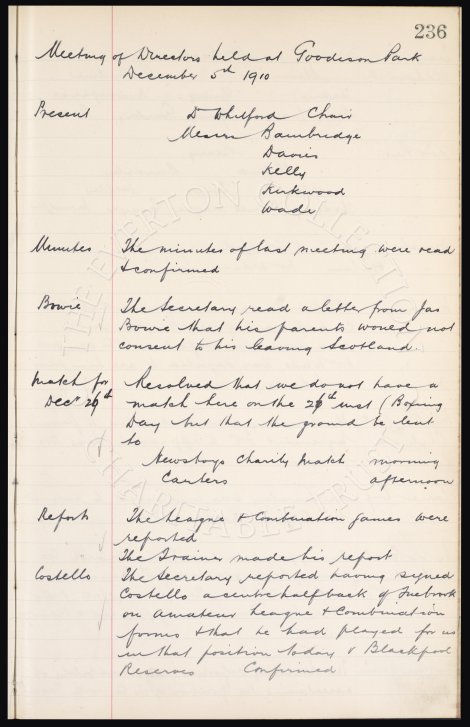 236
Meeting of Directors held at Goodison Park
December 5th 1910
Present Dr Whitford Chair
Messrs Bainbridge
Davies
Kelly
Kirkwood
Wade
Minutes The minutes of last meeting were read
& confirmed
Bowie The Secretary read a letter from Jas
Bowie that his parents would not
consent to his leaving Scotland.
Match for Resolved that we do not have a
Decr 26th match here on the 26th inst (Boxing
Day but that the ground be lent
to
Newsboys Charity Match morning
Carters afternoon
Reports The League & Combination games were
reported
The Trainer made his report
Costello The Secretary reported having signed
Costello a centre half back of Tuebrook
on amateur League & Combination
forms & that he had played for us
in that position today v Blackpool
Reserves Confirmed
THE EVERTON COLLECTION
CHARITABLE TRUST